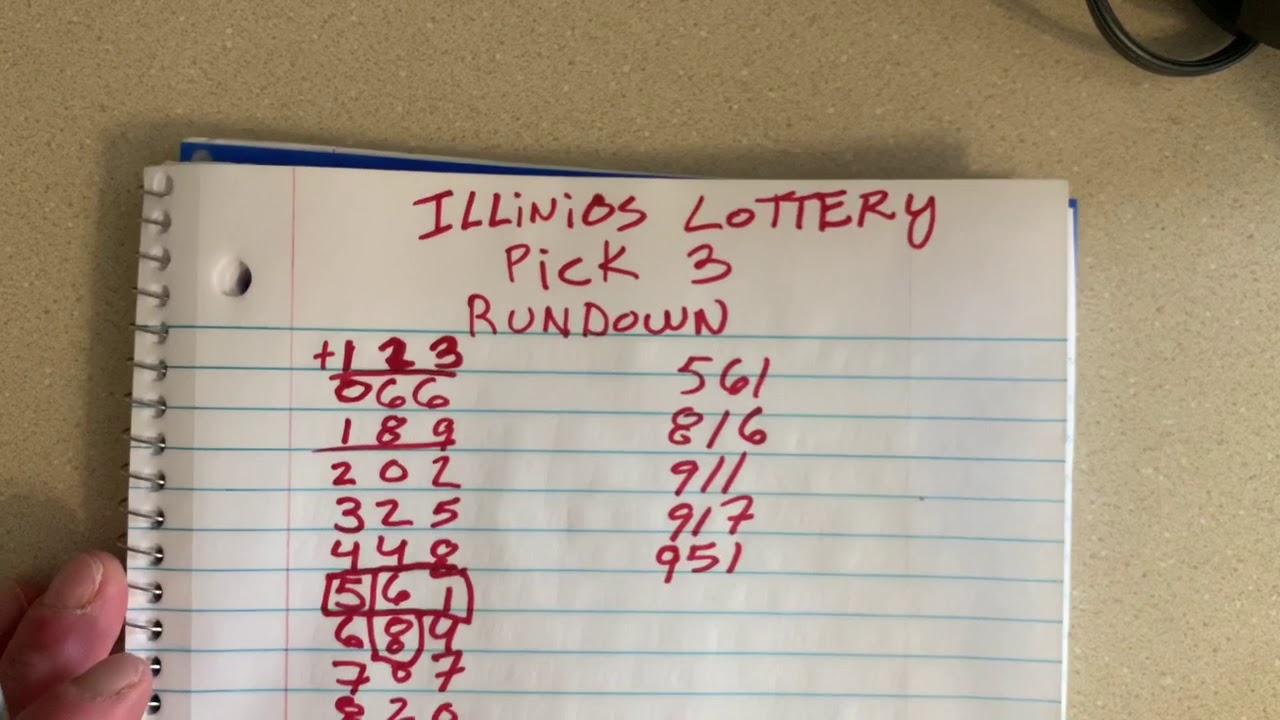 ILLiNiOS LOTTERY
PiCK 3
RUNDOWN
+123
066
189
202
325
448
561
689
787
820
561
816
911
917
951